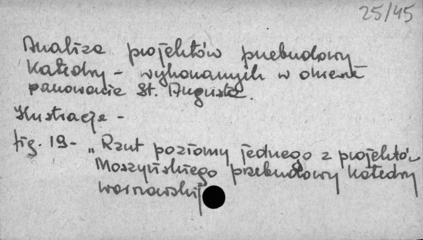 25/45
Analiza projektów przebudowy
Katedry - wykonanych w okresie
panowania St. Augusta.
Ilustracje -
fig. 19 - "Rzut poziomy jednego z projektów
Moszyńskiego przebudowy Katedry
warszawskiej